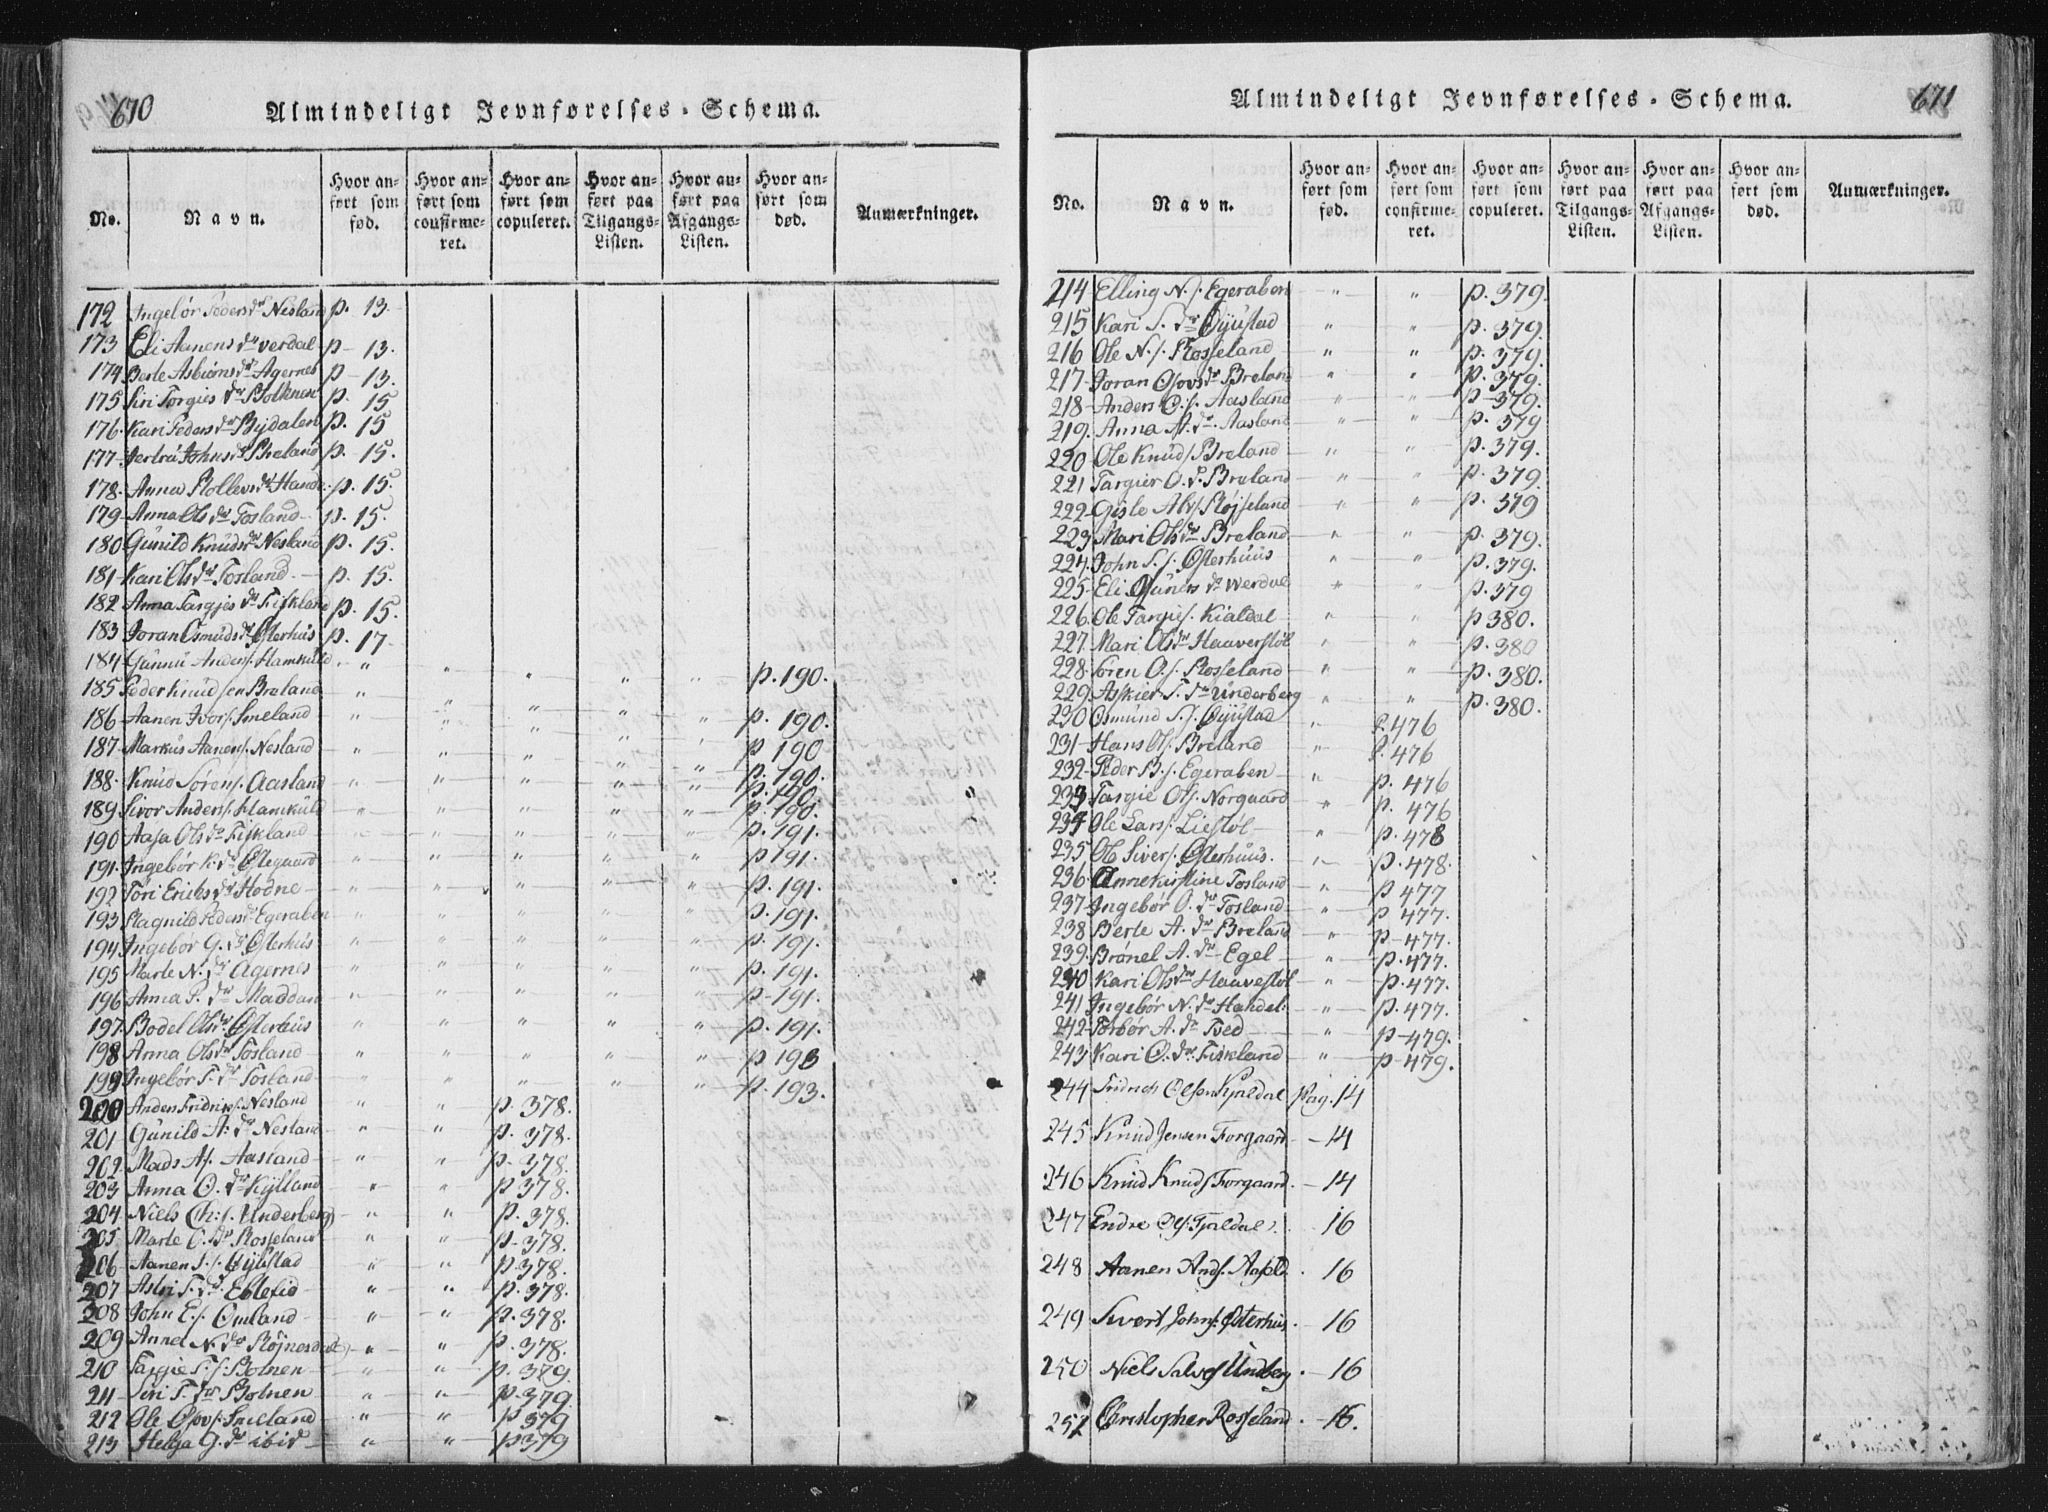 670
Almindeligt Jevnførelses-Schema.
No. Navn. Hvor anført som fød. Hvor anført som confirmeret. Hvor anført som copuleret. Hvor anført paa Tilgangs-Listen. Hvor anført paa Afgangs-Listen. Hvor anført som død. Anmærkninger.
172 Ingebør Peders dr Nesland p. 13.
173 Eli Aanens dr verdal p 13.
174 Berte Asbiørns dr Agernes p 13.
175 Siri Torgies dr p. 15
176. Kari Peders dr p. 15
177 Johns dr p. 15.
178. Anna dr p. 15.
179 Anna Ols dr Fosland p. 15.
180 Gunild Knuds dr Nesland p. 15.
181 Kari Ols dr Fosland p. 15.
182 Anna Targjes dr Fiskland p. 15.
183 Joran Osmuds dr Osterhus p. 17
184 Gunnu Anders. Hamkuld " " " " " p. 190.
185 Peder Knudsen Breland " " " " " p. 190.
186 Aanen Ivers. Smeland " " " " " p 190
187. Markus Aanens. Nesland " " " " " p. 190.
188. Knud Sørens. Aasland " " " " " p. 190
189 Sivor Anders. Hamkuld " " " " " p. 190.
190 Aasa Ols dr Fiskland " " " " " p. 191.
191. Ingebør K. dr Ølegaard " " " " " p 191.
192 Tori Eriks dr Hodne " " " " " p. 191.
193 Ragnild Peders dr Egeraben " " " " " p. 191.
194 Ingebør G. dr Osterhus " " " " " p. 191.
195 Marte N. dr Agernes " " " " " p. 191.
196 Anna P. dr Maddan " " " " " p-191.
197 Bodel Ols dr Osterhus " " " " " p. 191.
198 Anna Ols dr Fosland " " " " " p 193
199 Ingebør T. dr Fosland " " " " " p. 193.
200 Anden Fridriks. Nesland " " p. 378.
201 Gunild A. dr Nesland " " p. 378.
202 Mads As. Aasland " " p. 378.
203 Anna O. dr Kylland " " p 378.
204 Niels Ch:s. Underberg " " p. 378.
205 Marte O. dr Rosseland " " p-378.
206 Aanen S.s. Øyustad " " p. 378.
207 Astri T. dr Eblefid " " p. 378.
208 John E.s. Omland " " p. 378.
209 Anne N. dr Røjnesdal " " p. 378.
210 Targie T.s. Bolnen " " p. 389.
211 Siri T. dr Bolnen " " p. 379.
212 Ole Olovs. Smeland " " p 379
213 Helga G. dr ibid " " p 379
671
Almindeligt Jevnførelses-Schema.
No. Navn. Hvor anført som fød. Hvor anført som confirmeret. Hvor anført som copuleret. Hvor anført paa Tilgangs-Listen. Hvor anført paa Afgangs-Listen. Hvor anført som død. Anmærkninger.
214 Elling N.s. Egeraben " " p. 379.
215 Kari S. dr Øyustad " " p. 379.
216 Ole N.s. Rosseland " " p. 379.
217 Joran Olovs dr Breland " " p. 379.
218 Anders O.s. Aasland " " p-379.
219. Anna A. dr Aasland " " p. 379
220 Ole Knuds Breland " " p. 379.
221 Targier O. dr Breland " " p. 379.
222 Gisle Alvs. Røjseland " " p. 379
223 Mari Ols dr Breland " " p. 379.
224 John S.s. Osterhuus " " p. 379.
225. Eli Gunuls dr Werdal " " p. 379
226 Ole Targies. Kialdal " " p 380.
227. Mari Ols dr Haaverstøl " " p. 380
228. Soren O.s. Rosseland " " p. 380.
229 Askier T. dr Underberg " " p. 380.
230 Osmund S.s. Øyustad " p. 476
231 Hans Ols. Breland " p. 476
232 Peder B.s. Egeraben " p. 476
233 Targie Ols. Norgaard " p. 476
234 Ole Lars. Liestøl " p. 478
235 Ole Sivers. Osterhuus. " p. 478.
236 Annekirstine Fosland " p 477
237 Ingebør O. dr Fosland " p 477.
238 Berte A. dr Breland " p-477.
239. Brønel A. dr Egel " p. 477.
240 Kari Ols dr Haavestøl " p. 477.
241 Ingebør N. dr Handel. " p. 477.
242 Torbør A. dr Tved " p-479.
243 Kari O. dr Fiskland " p-479.
244 Fridrich Olsen Kjaldal Pag. 14
245 Knud Jensen Forgaard 14
246 Knud Knuds Forgaard. 14
247 Endre Ols. 16
248 Aanen Ands. 16
249 Sivert Johns. Osterhus. 16
250 Niels Salves Undberg. 16
251 Christopher Rosseland. 16.